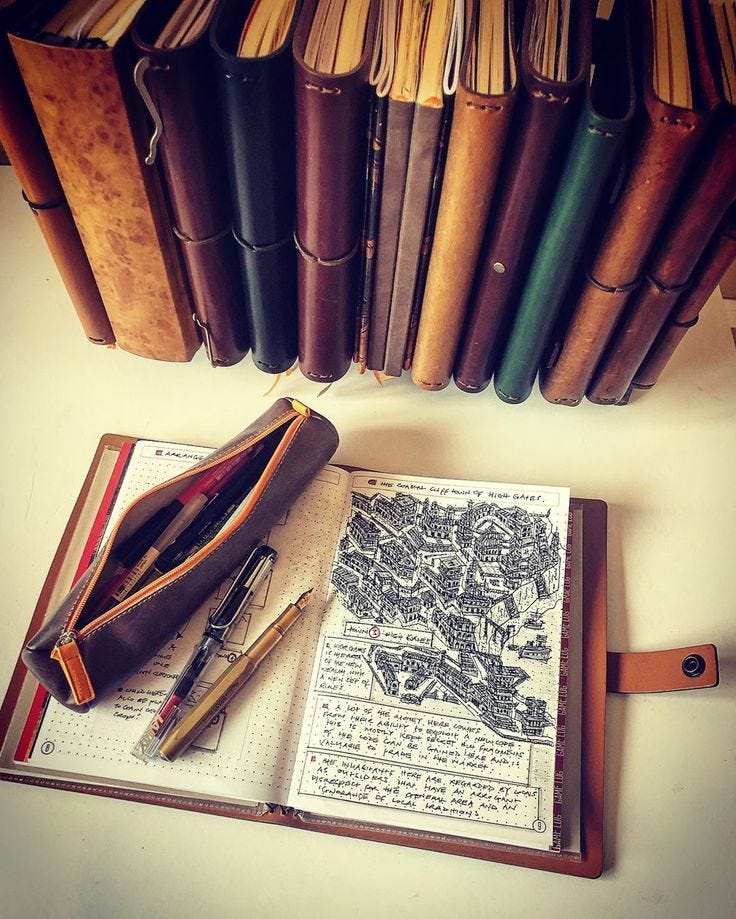 ARRANGE
COULD HERE
ALSO BE
TO GAIN
8
THE COASTAL CLIFF TOWN OF HIGH GATES.
TOWN HIGH GATES
HERE
IS THE AREA
OF THE NEW
WEALTH WITH
A NEW SET OF
RULES
A LOT OF THE MONEY HERE COMES
FROM THEIR ABILITY TO EXPLOIT A NEW CODE.
THIS IS MOSTLY KEPT SECRET BUT FRAGMENTS
OF THE CODE CAN BE GAINED HERE AND IS
VALUABLE TO TRADE IN THE MARKET.
THE INHABITANTS HERE ARE REGARDED BY LOCALS
AS OUTSIDERS THAT HAVE AN ARROGANT
DISRESPECT FOR THE GENERAL AREA AND AN
IGNORANCE OF LOCAL TRADITIONS.
9
GAME LOG
GAME LOG
GAME LOG
GAME LOG
GAME LOG
GAME LOG